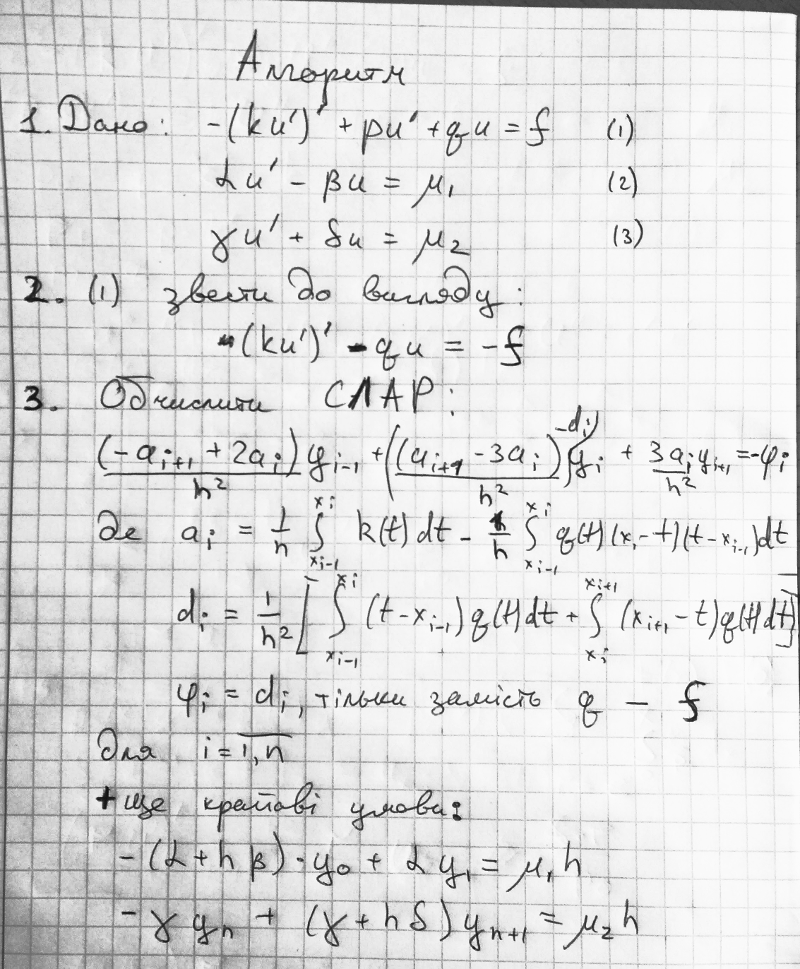 Алгоритм
1. Дано: -(ku')' + pu' + qu = f (1)
αu' - βu = μ₁ (2)
γu' + δu = μ₂ (3)
2. (1) звести до вигляду:
-(ku')' - qu = -f
3. Обчислити СЛАР:
(-aᵢ₊₁ + 2aᵢ)/h² yᵢ₋₁ + ((aᵢ₊₁ - 3aᵢ)/h² - dᵢ) yᵢ + 3aᵢ/h² yᵢ₊₁ = -φᵢ
де aᵢ = 1/h ∫_{xᵢ₋₁}^{xᵢ} k(t)dt - 1/h ∫_{xᵢ₋₁}^{xᵢ} q(t)(xᵢ-t)(t-xᵢ₋₁)dt
dᵢ = 1/h² [∫_{xᵢ₋₁}^{xᵢ} (t-xᵢ₋₁)q(t)dt + ∫_{xᵢ}^{xᵢ₊₁} (xᵢ₊₁-t)q(t)dt]
φᵢ = dᵢ, тільки замість q - f
для i = 1,n
+ ще крайові умови:
-(α+hβ)·y₀ + αy₁ = μ₁h
-γyₙ + (γ+hδ)yₙ₊₁ = μ₂h